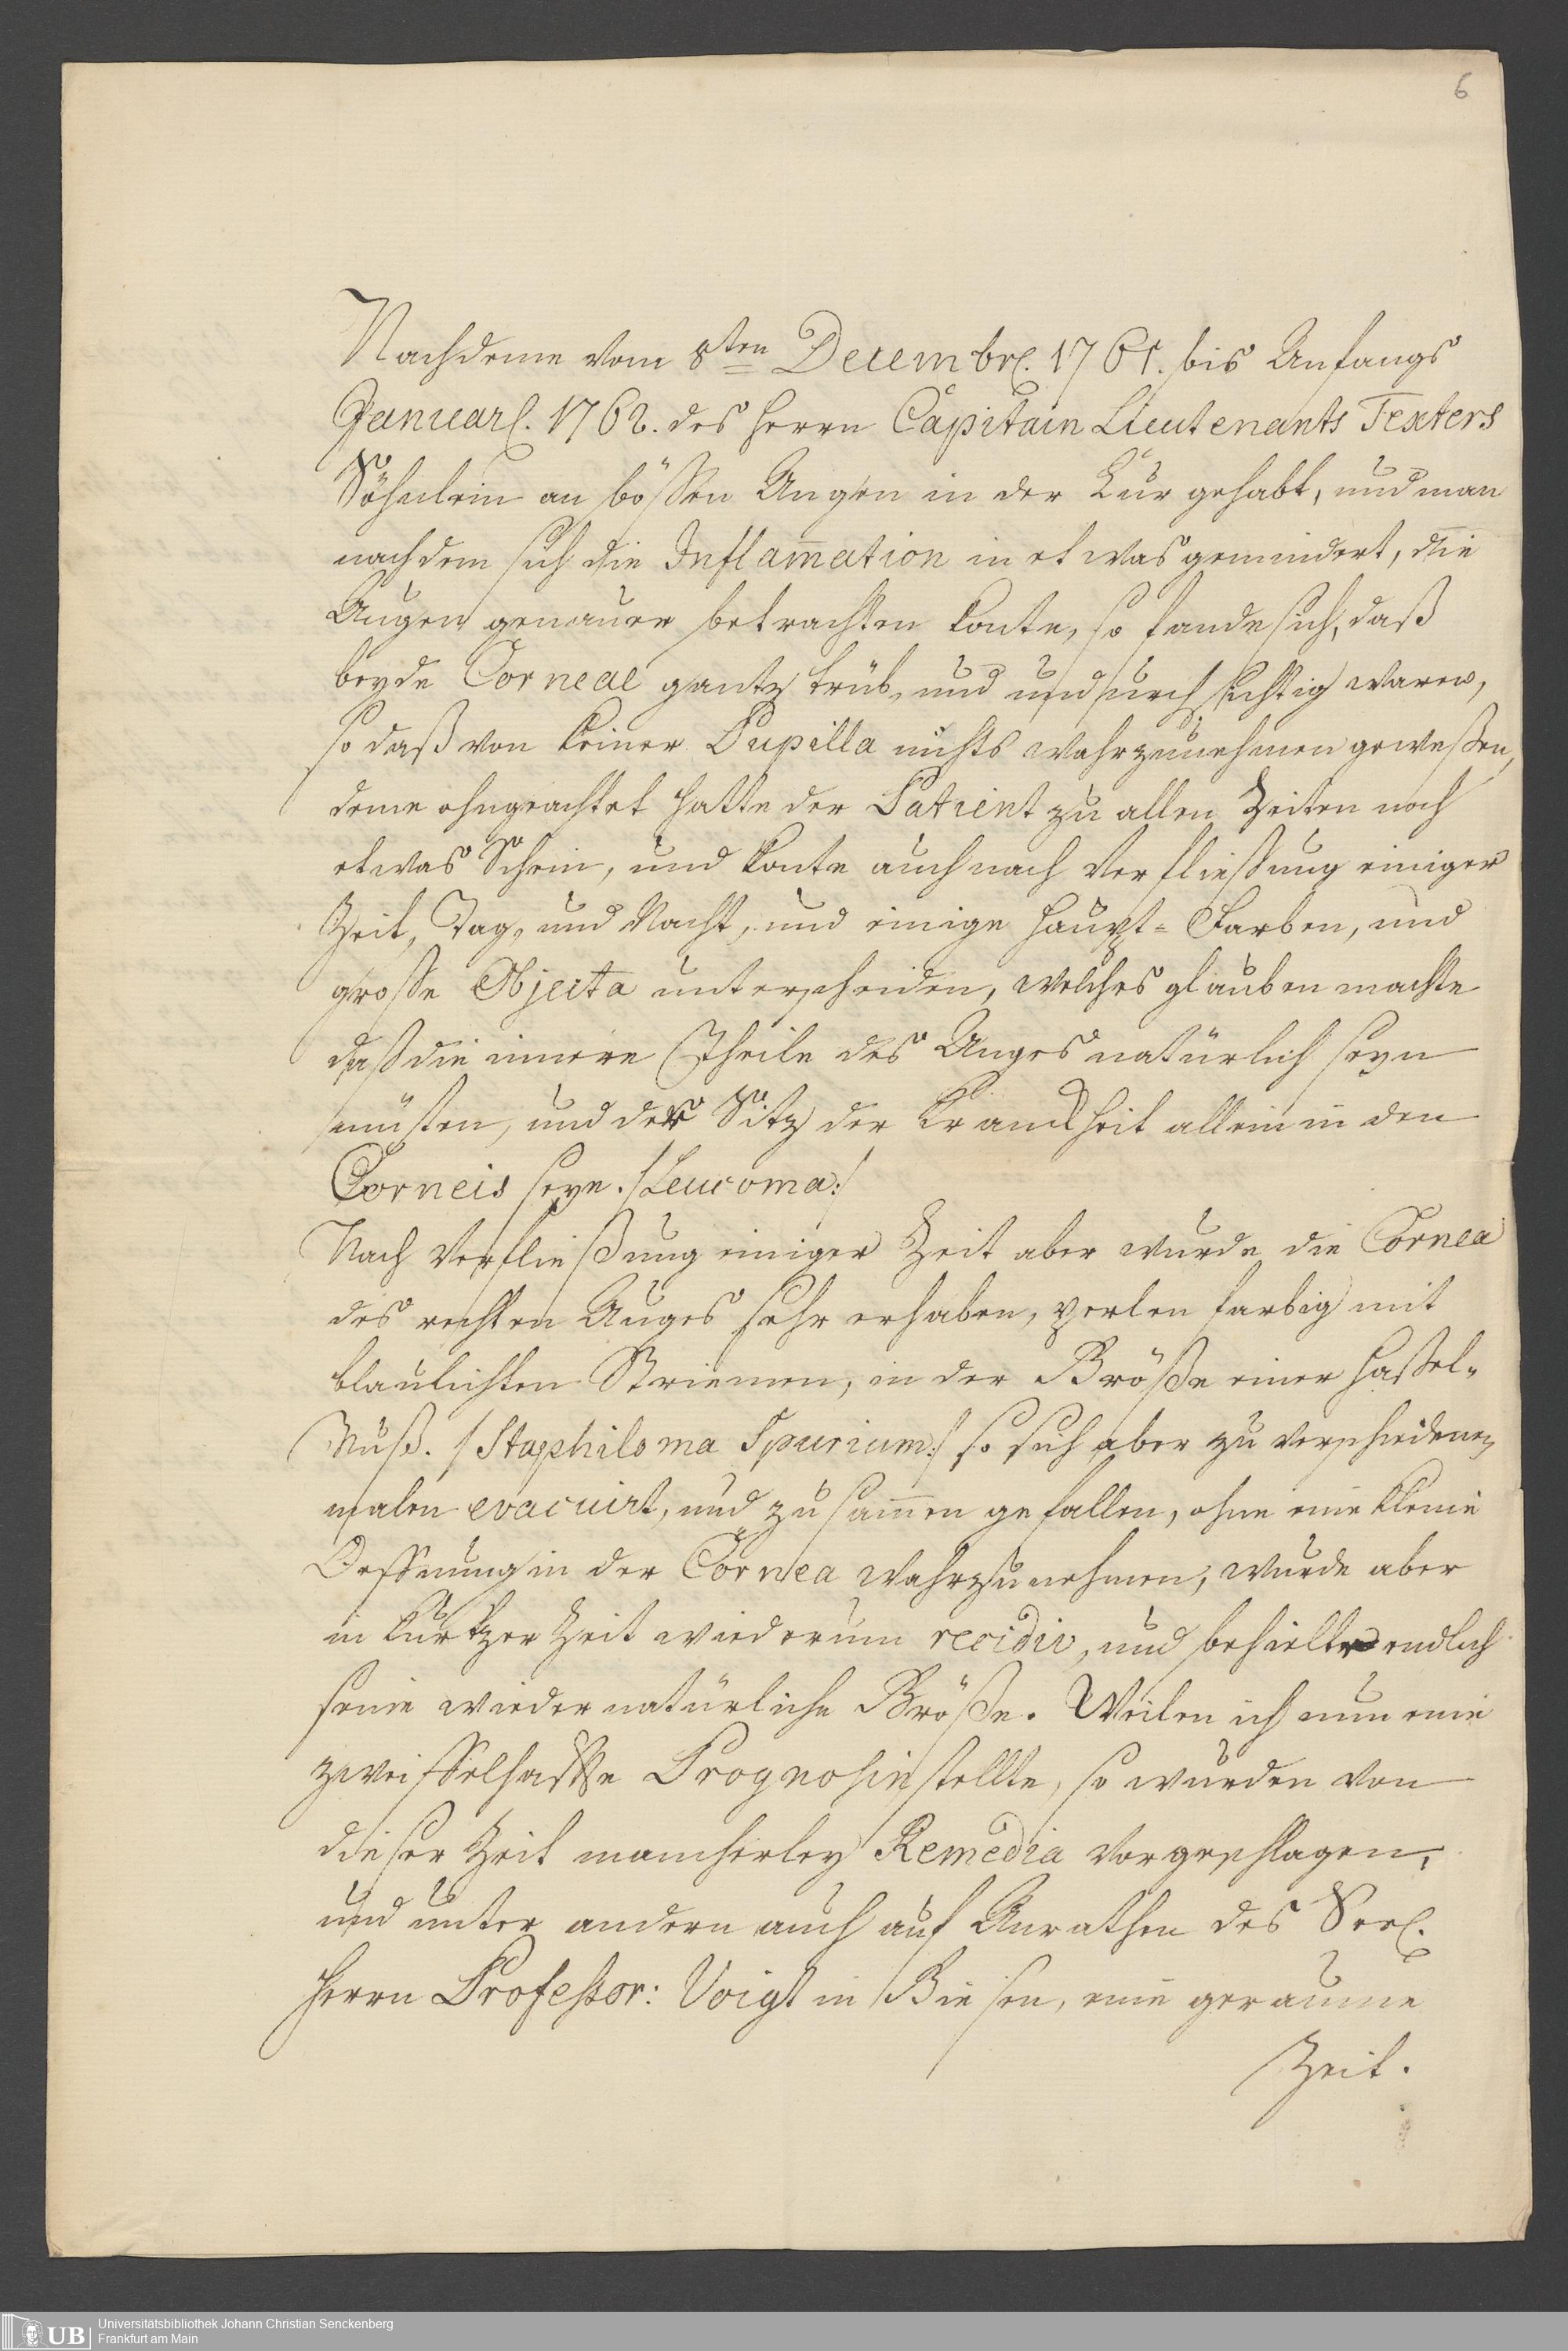 6
Nachdeme vom 8ten Decembr. 1761. bis Anfangs
Januar. 1762. des Herrn Capitain Lieutenants Texters
Söhnlein an bößen Augen in der Cur gehabt, und man
nachdem sich die Inflam̄ation in etwas gemindert, die
Augen genauer betrachten konte, so fande sich, daß
beyde Corneae gantz trüb, und undurchsichtig waren,
so daß von keiner Pupilla nichts wahrzunehmen geweßen,
deme ohngeachtet hatte der Patient zu allen Zeiten noch
etwas Schein, und konte auch nach Verfließung einiger
Zeit, Tag, und Nacht, und einige Haupt-Farben, und
große Objecta unterscheiden, welches glauben machte
daß die innere Theile des Auges natürlich seyn
müßten, und der Sitz der Kranckheit allein in den
Corneis seye. /:Leucoma:/
Nach Verfließung einiger Zeit aber wurde die Cornea
des rechten Auges sehr erhaben, perlen farbig mit
blaulichten Striemen, in der Größe einer Haßel-
Nuß. /:Staphiloma Spurium:/ so sich aber zu verschiedenen
malen evacuirt, und zusam̄en gefallen, ohne eine kleine
Oeffnung in der Cornea wahrzunehmen, wurde aber
in kurtzer Zeit wiederum recidiv, und behielte endlich
seine wiedernatürliche Größe. Weilen ich nun eine
zweiffelhaffte Prognosin stellte, so wurden von
dieser Zeit mancherley Remedia vorgeschlagen,
und unter andern auch auf Anrathen des Seel.
Herrn Professor: Voigt in Giesen, eine geraume
Zeit.
UB
Universitätsbibliothek Johann Christian Senckenberg
Frankfurt am Main